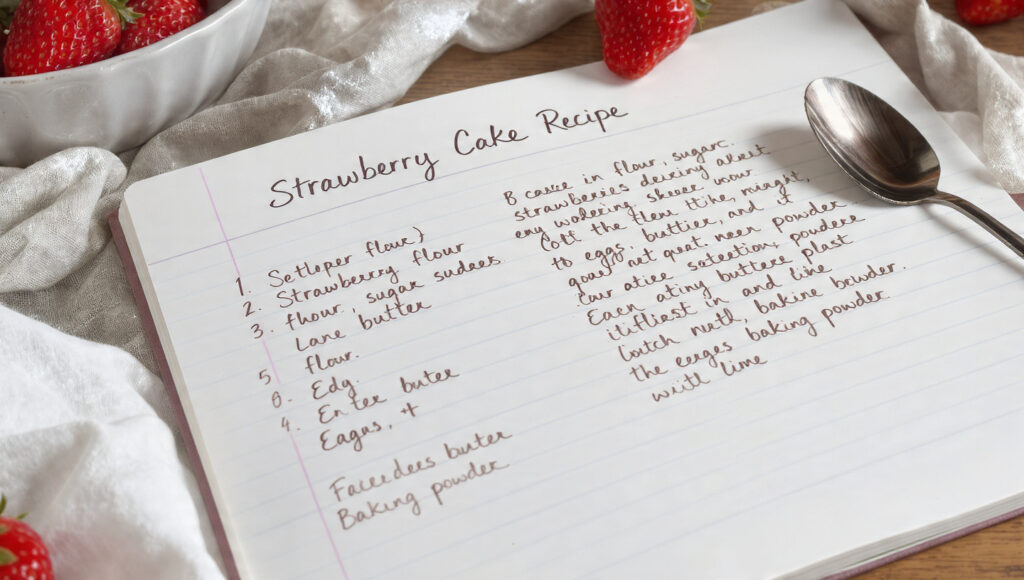 Strawberry Cake Recipe
1. Setloper flour)
2. Strawberry flour
3. flour, sugar sudees.
Lane butter
5 flour.
0. Edg.
4. Enter buter
Eagas, +
Facedees buter
Baking powder
B casse in flour, sugarc.
strawberries dexirg aleet
eny wodering skever wour
the Hlene Hike, minight,
to eggs, butter, and it
goay aet queat neen powder
Cwr atice sotention, powdere
Eacn atiny buttere plast
itifliest in and line
Coutch nutl, bakine bowder.
the eerges baking powder.
witl lime